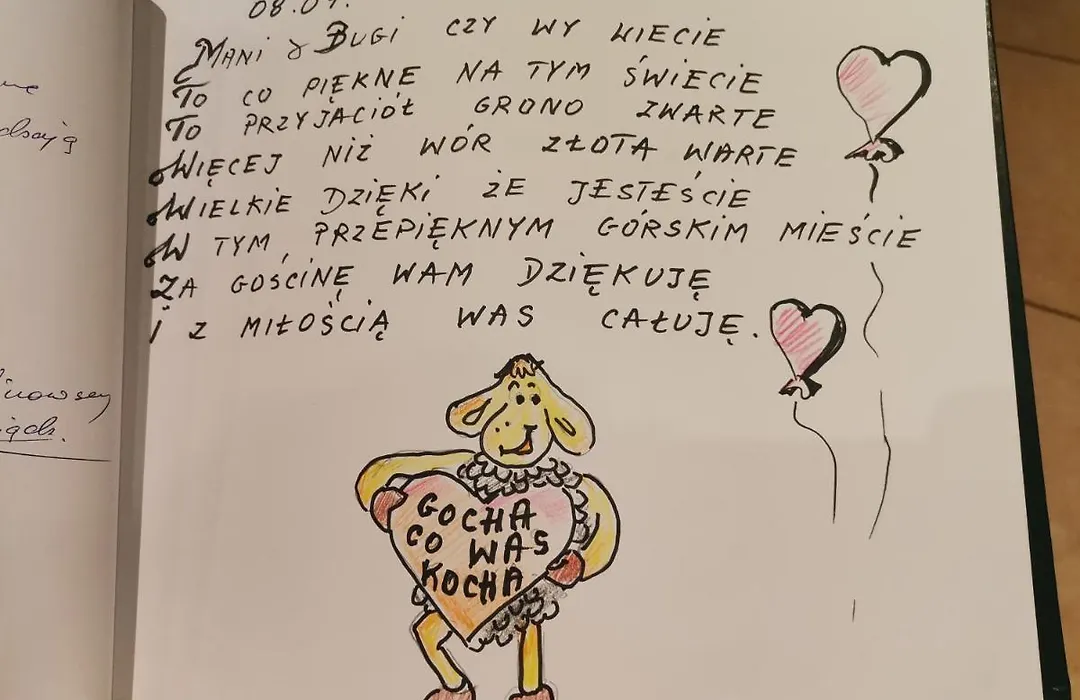 08.09.
MANI & BUGI CZY WY WIECIE
TO CO PIĘKNE NA TYM ŚWIECIE
TO PRZYJACIÓŁ GRONO ZWARTE
WIĘCEJ NIŻ WÓR ZŁOTA WARTE
WIELKIE DZIĘKI ŻE JESTEŚCIE
W TYM PRZEPIĘKNYM GÓRSKIM MIEŚCIE
ZA GOŚCINĘ WAM DZIĘKUJĘ
I Z MIŁOŚCIĄ WAS CAŁUJĘ.
GOCHA
CO WAS
KOCHA